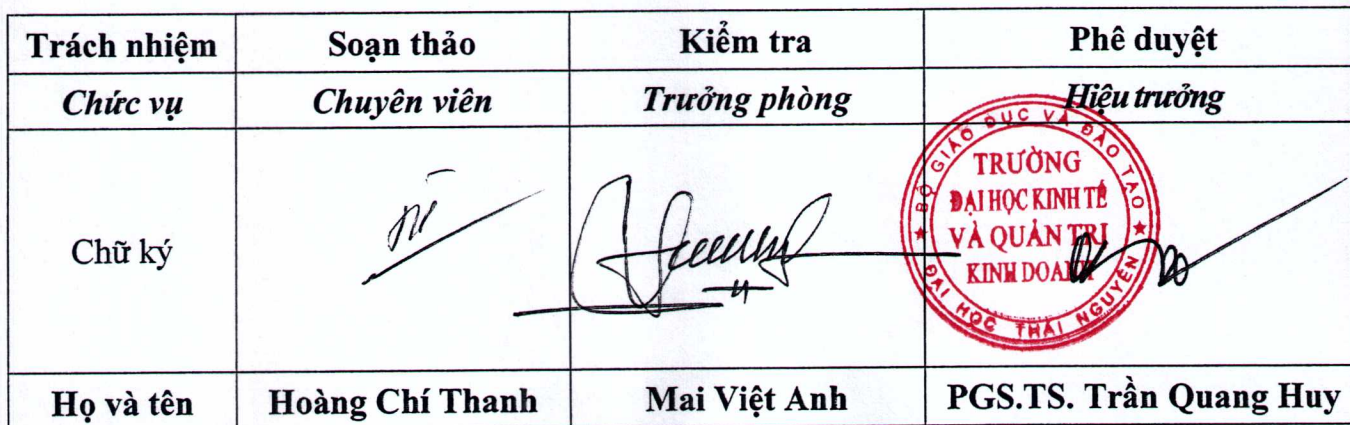 Trách nhiệm Soạn thảo Kiểm tra Phê duyệt
Chức vụ Chuyên viên Trưởng phòng Hiệu trưởng
Chữ ký
BỘ GIÁO DỤC VÀ ĐÀO TẠO
TRƯỜNG
ĐẠI HỌC KINH TẾ
VÀ QUẢN TRỊ
KINH DOANH
ĐẠI HỌC THÁI NGUYÊN
Họ và tên Hoàng Chí Thanh Mai Việt Anh PGS.TS. Trần Quang Huy